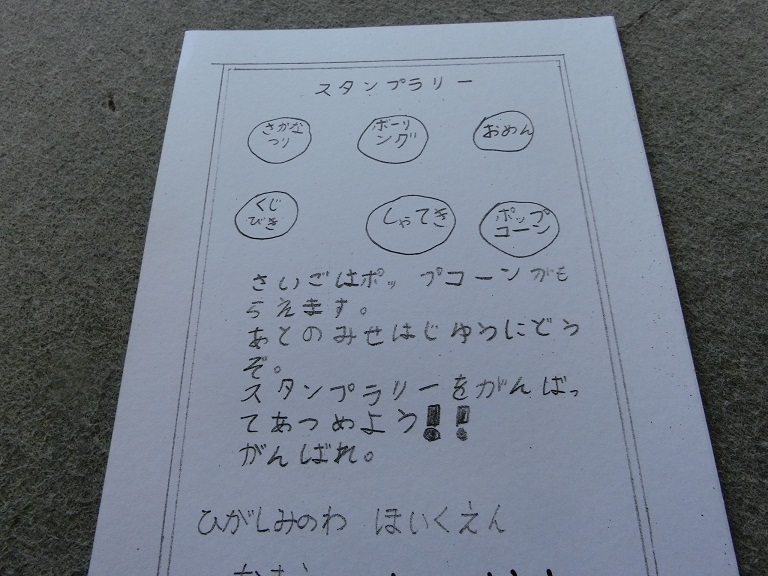 スタンプラリー
さかな
つり
ボーリ
ング
おめん
くじ
びき
しゃてき
ポップ
コーン
さいごはポップコーンがも
らえます。
あとのみせはじゆうにどう
ぞ。
スタンプラリーをがんばっ
てあつめよう!!
がんばれ。
ひがしみのわ ほいくえん